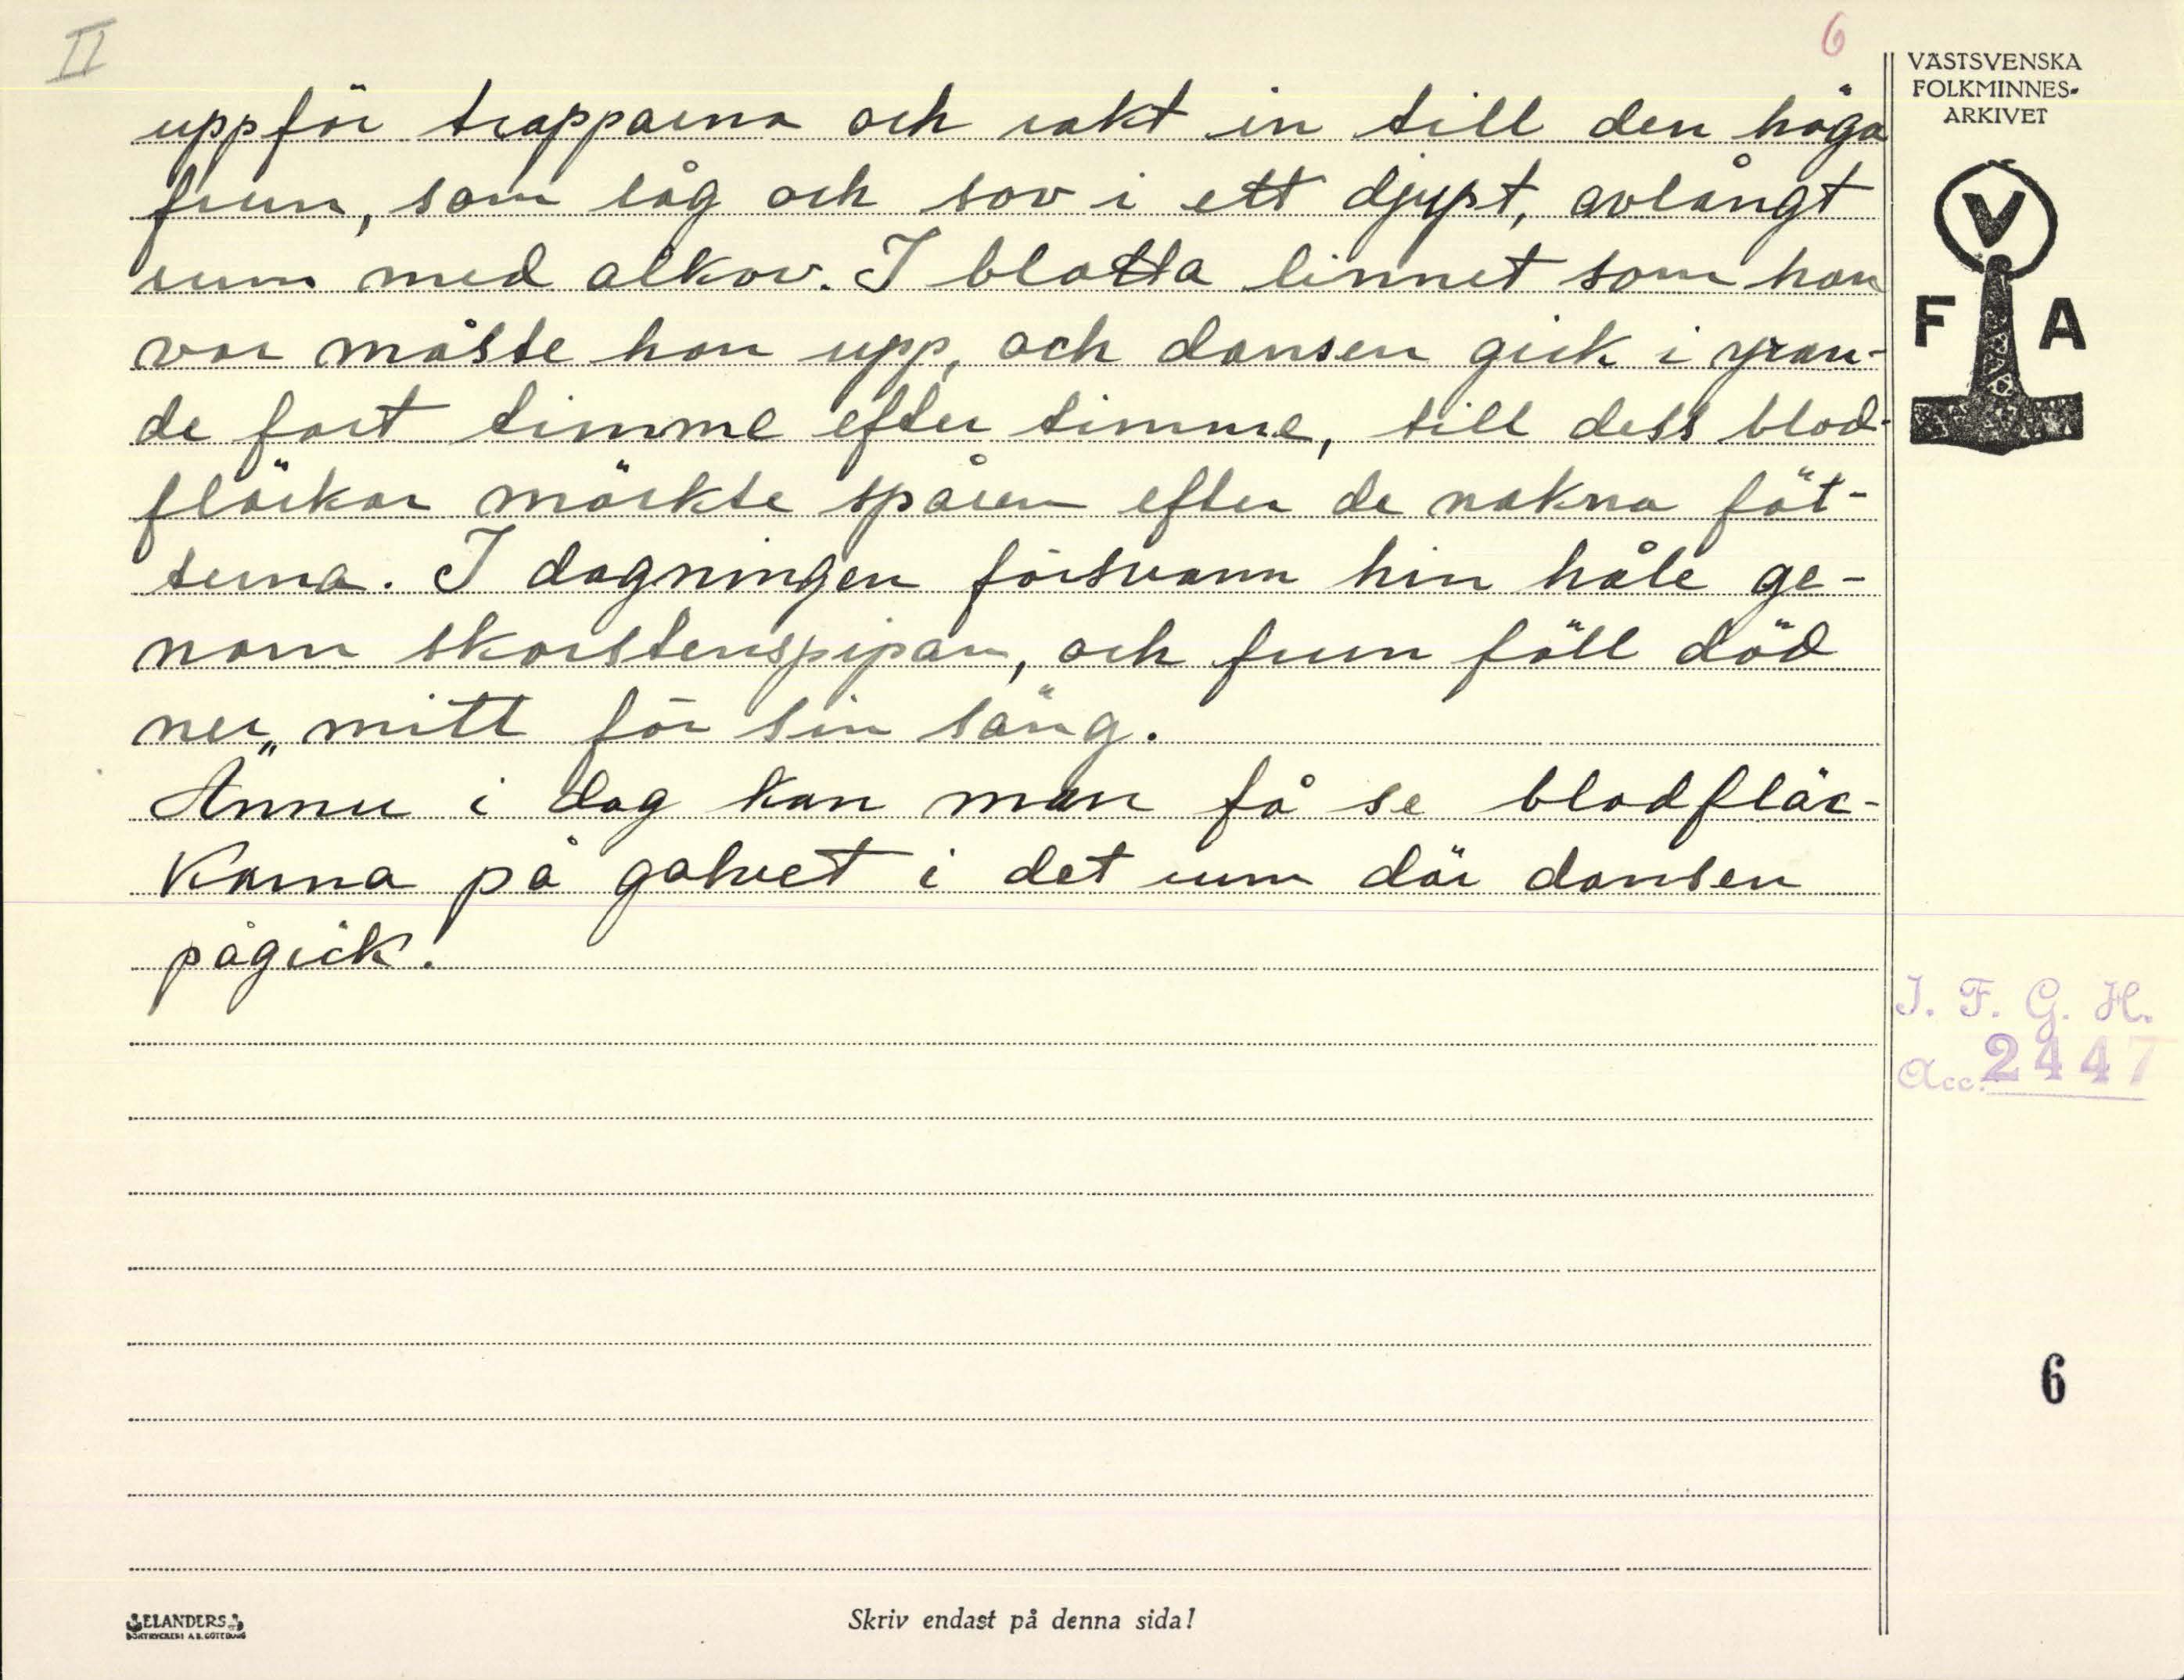 II
6
uppför trapporna och rakt in till den höga
frun, som låg och sov i ett djupt, avlångt
rum med alkov. I blotta linnet som hon
var måste hon upp, och dansen gick i yran-
de fart timme efter timme, till dess blod-
fläckar märkte spåren efter de nakna föt-
terna. I dagningen försvann hin håle ge-
nom skorstenspipan, och frun föll död
ner mitt för sin säng.
Ännu i dag kan man få se blodfläc-
karna på golvet i det rum där dansen
pågick.
VÄSTSVENSKA
FOLKMINNES-
ARKIVET
V
F A
I. F. G. H.
Acc. 2447
6
ELANDERS
BOKTRYCKERI A.B. GÖTEBORG
Skriv endast på denna sida!